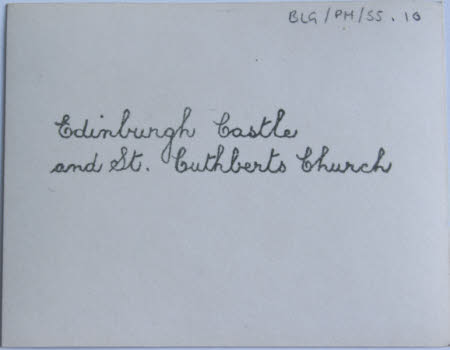 BLG/PH/SS.10
Edinburgh Castle
and St. Cuthberts Church